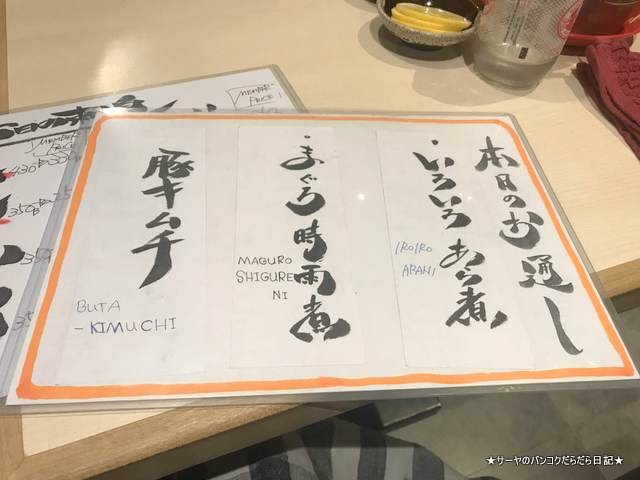 本日のお通し
・いろいろあら煮
IROIRO
ARANI
・まぐろ時雨煮
MAGURO
SHIGURE
NI
豚キムチ
BUTA
-KIMUCHI
MEMBER
PRICE
MEMBER
PRICE
★サーヤのバンコクだらだら日記★